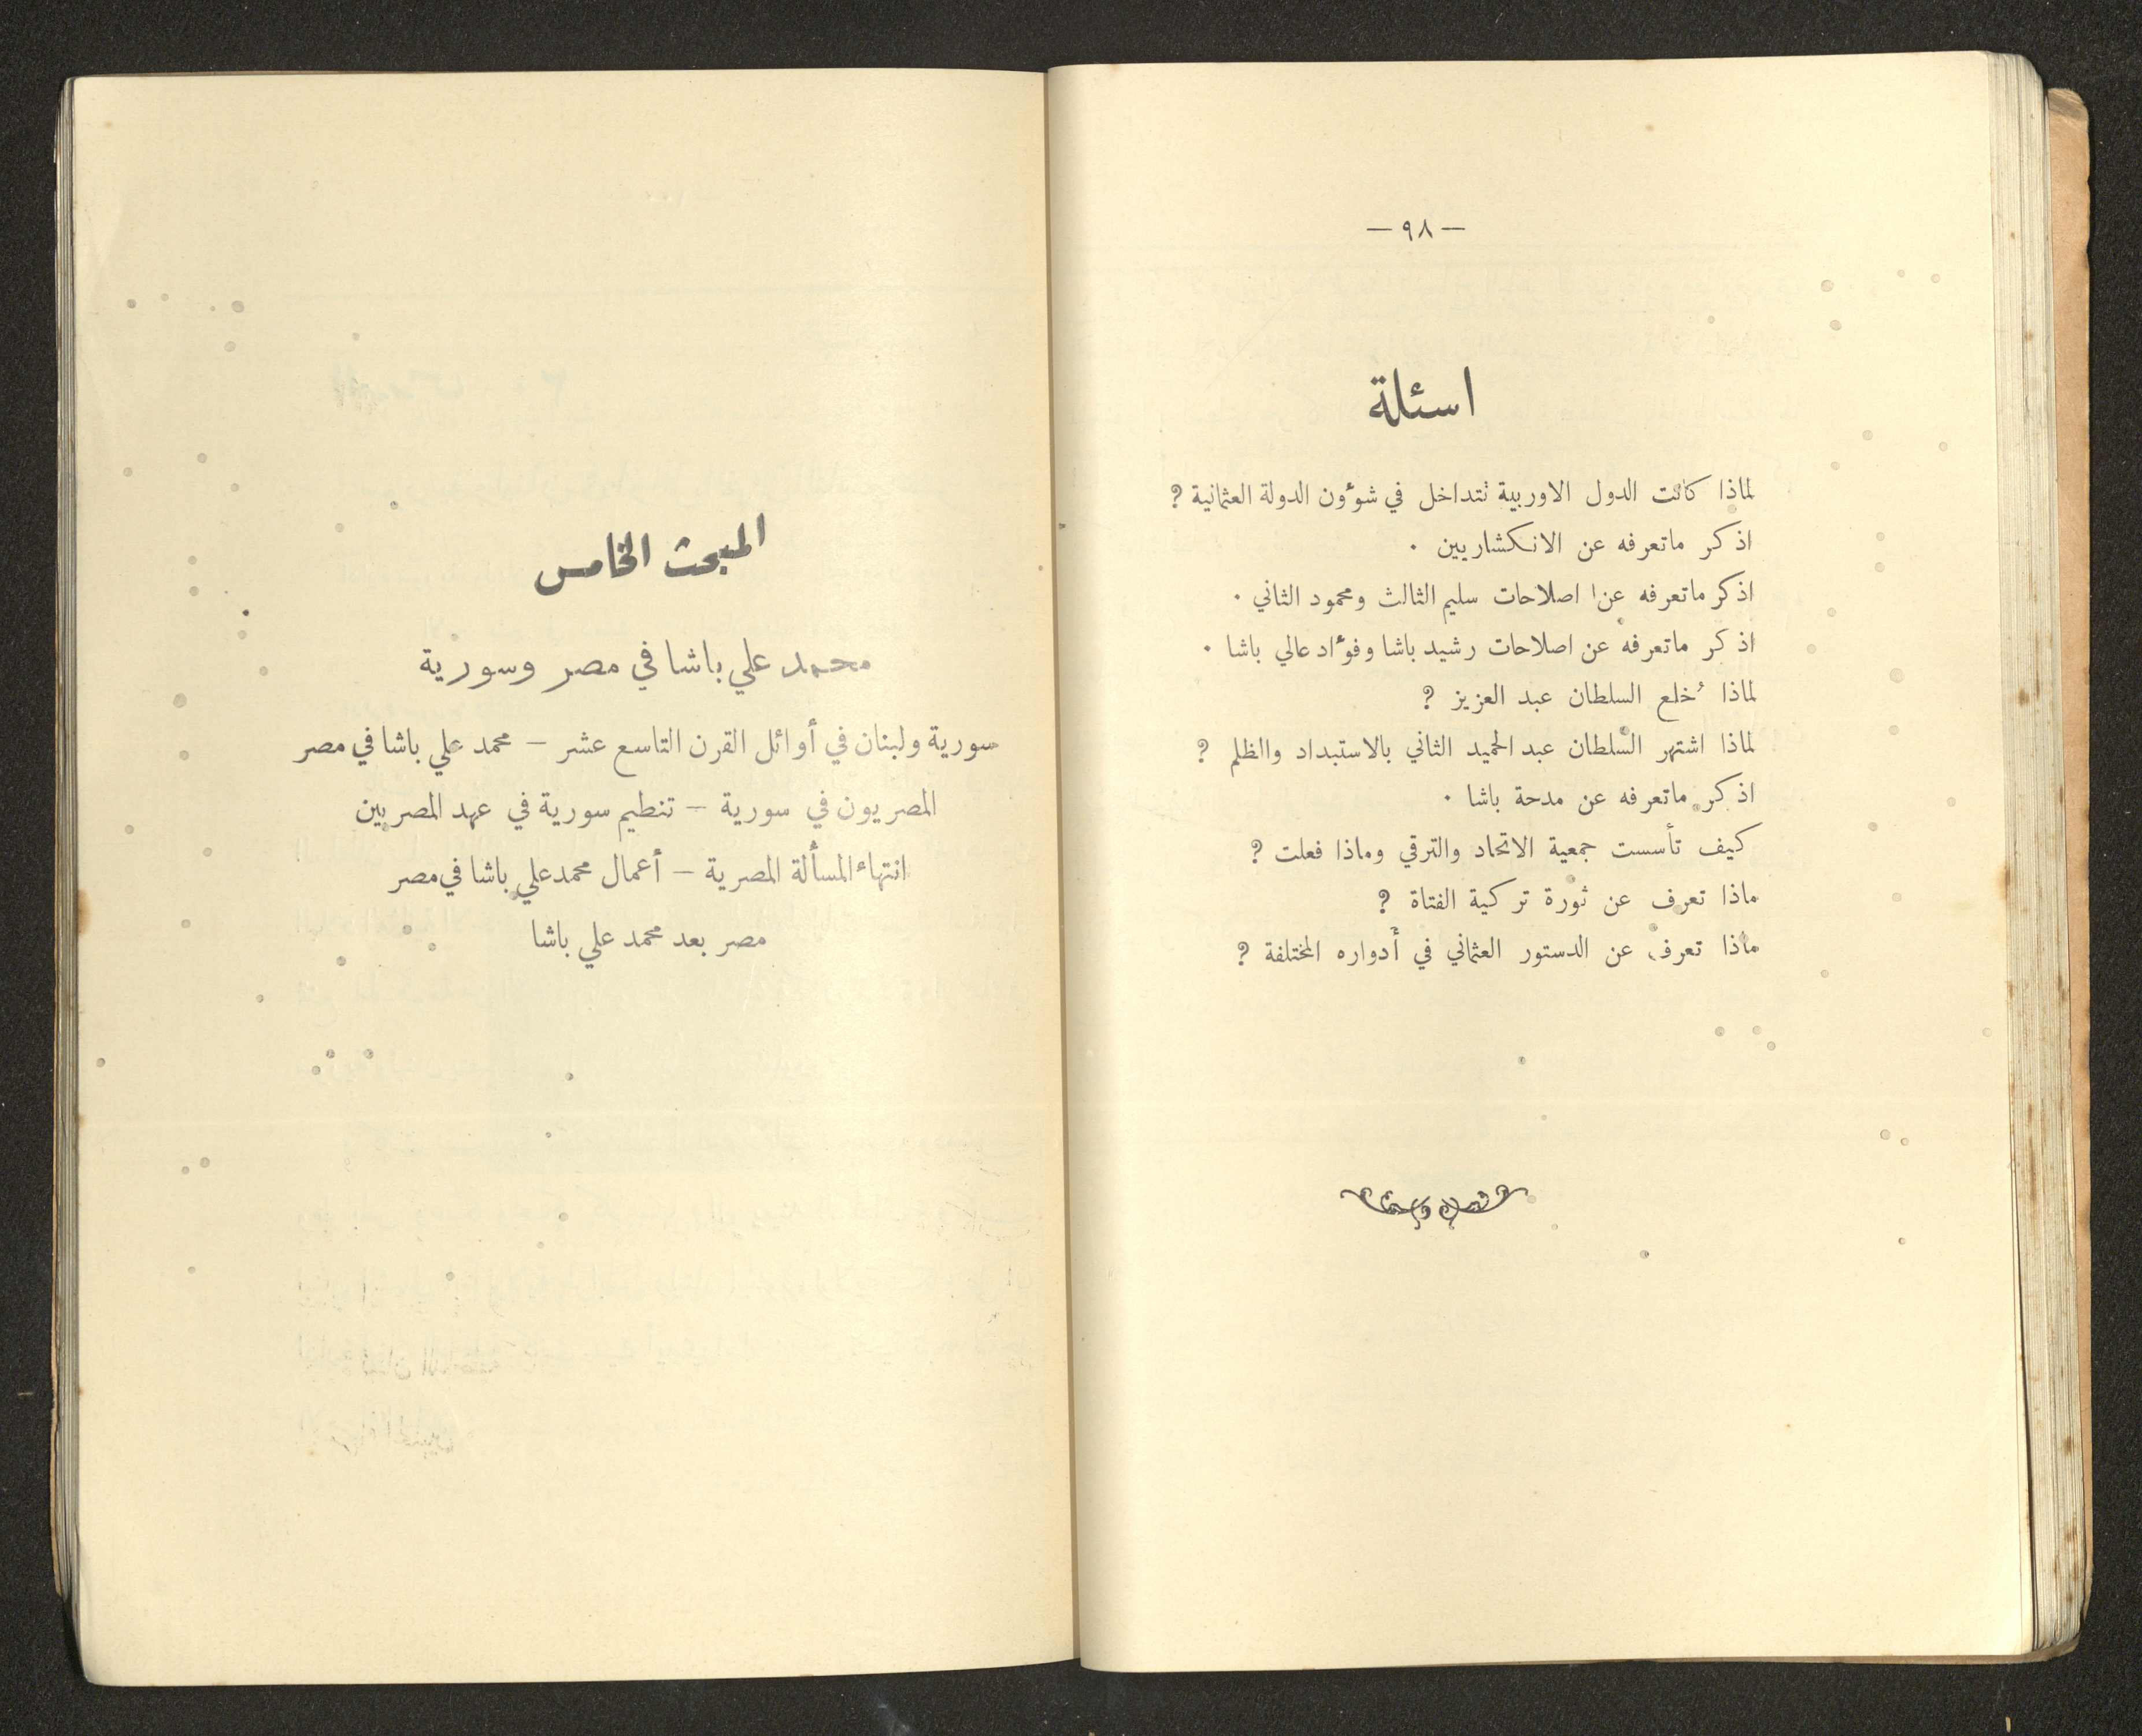 — ٩٨ —
اسئلة
لماذا كانت الدول الاوربية تتداخل في شوٴون الدولة العثمانية ?
اذكر ماتعرفه عن الانكشاريين .
اذكر ماتعرفه عن اصلاحات سليم الثالث ومحمود الثاني .
اذكر ماتعرفه عن اصلاحات رشيد باشا وفوٴاد عالي باشا .
لماذا خُلع السلطان عبد العزيز ?
لماذا اشتهر السلطان عبد الحميد الثاني بالاستبداد والظلم ?
اذكر ماتعرفه عن مدحة باشا .
كيف تأسست جمعية الاتحاد والترقي وماذا فعلت ?
ماذا تعرف عن ثورة تركية الفتاة ?
ماذا تعرف عن الدستور العثماني في أدواره المختلفة ?
المبحث الخامس
محمد علي باشا في مصر وسورية
سورية ولبنان في أوائل القرن التاسع عشر — محمد علي باشا في مصر
المصريون في سورية — تنظيم سورية في عهد المصريين
انتهاء المسألة المصرية — أعمال محمد علي باشا في مصر
مصر بعد محمد علي باشا